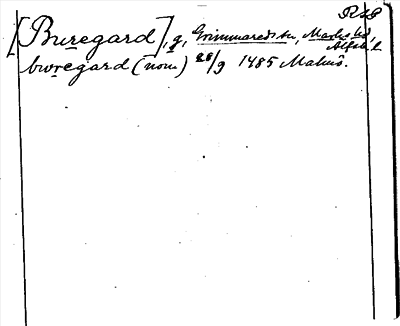 RAP
[Buregard], g, Grimmareds sn, Marks hd,
Älfsb. l.
bwregard (nom) 28/9 1485 Malmö.